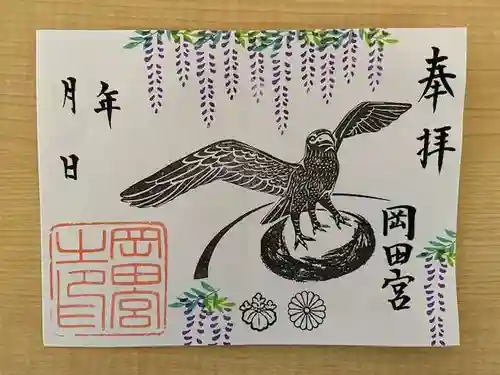 奉拝
岡田宮
年
月 日
岡田宮